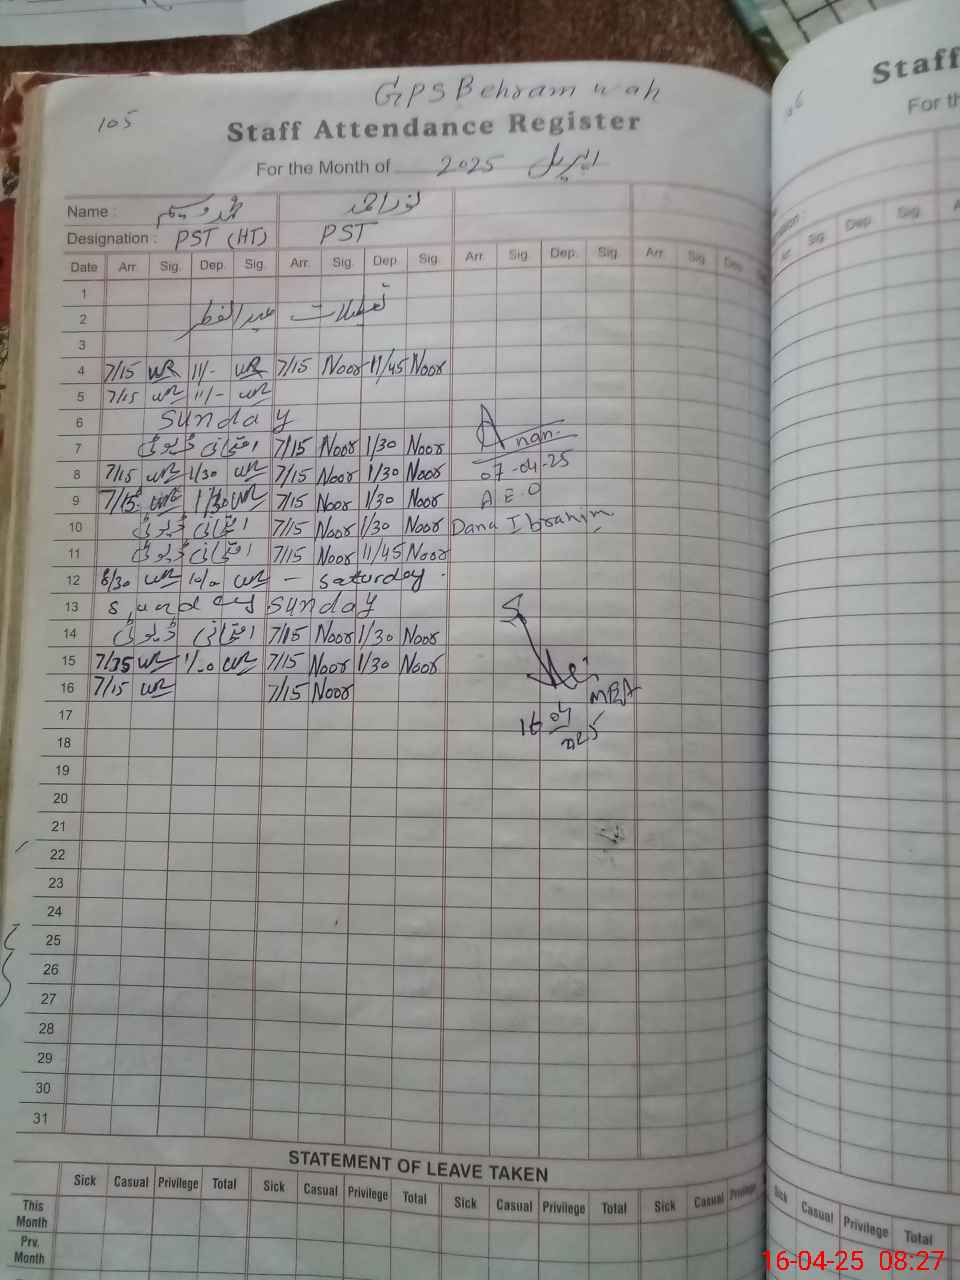 GPS Behramwah
105
Staff Attendance Register
For the Month of 2025 اپریل
Name : محمد وسیم نور احمد
Designation : PST (HT) PST
Date Arr. Sig. Dep. Sig. Arr. Sig. Dep. Sig. Arr. Sig. Dep. Sig. Arr. Sig. Dep.
1
2 تعطیلات عید الفطر
3
4 7/15 WR 11/- WR 7/15 Noor 11/45 Noor
5 7/15 WR 11/- WR
6 Sunday
7 امتحانی ڈیوٹی 7/15 Noor 1/30 Noor
8 7/15 WR 1/30 WR 7/15 Noor 1/30 Noor 07-04-25
9 7/15 WR 1/30 WR 7/15 Noor 1/30 Noor A E O
10 امتحانی ڈیوٹی 7/15 Noor 1/30 Noor Dana Ibrahim
11 امتحانی ڈیوٹی 7/15 Noor 11/45 Noor
12 8/30 WR WR - Saturday.
13 Sunday Sunday
14 امتحانی ڈیوٹی 7/15 Noor 1/30 Noor
15 WR WR 7/15 Noor 1/30 Noor
16 7/15 WR 7/15 Noor
MEA
17 16 04
18 2025
19
20
21
22
23
24
25
26
27
28
29
30
31
STATEMENT OF LEAVE TAKEN
Sick Casual Privilege Total Sick Casual Privilege Total Sick Casual Privilege Total Sick Casual Privilege
This Month
Prv. Month
Staff
For th
Arr. Sig. Dep. Sig.
Sick Casual Privilege Total
16-04-25 08:27